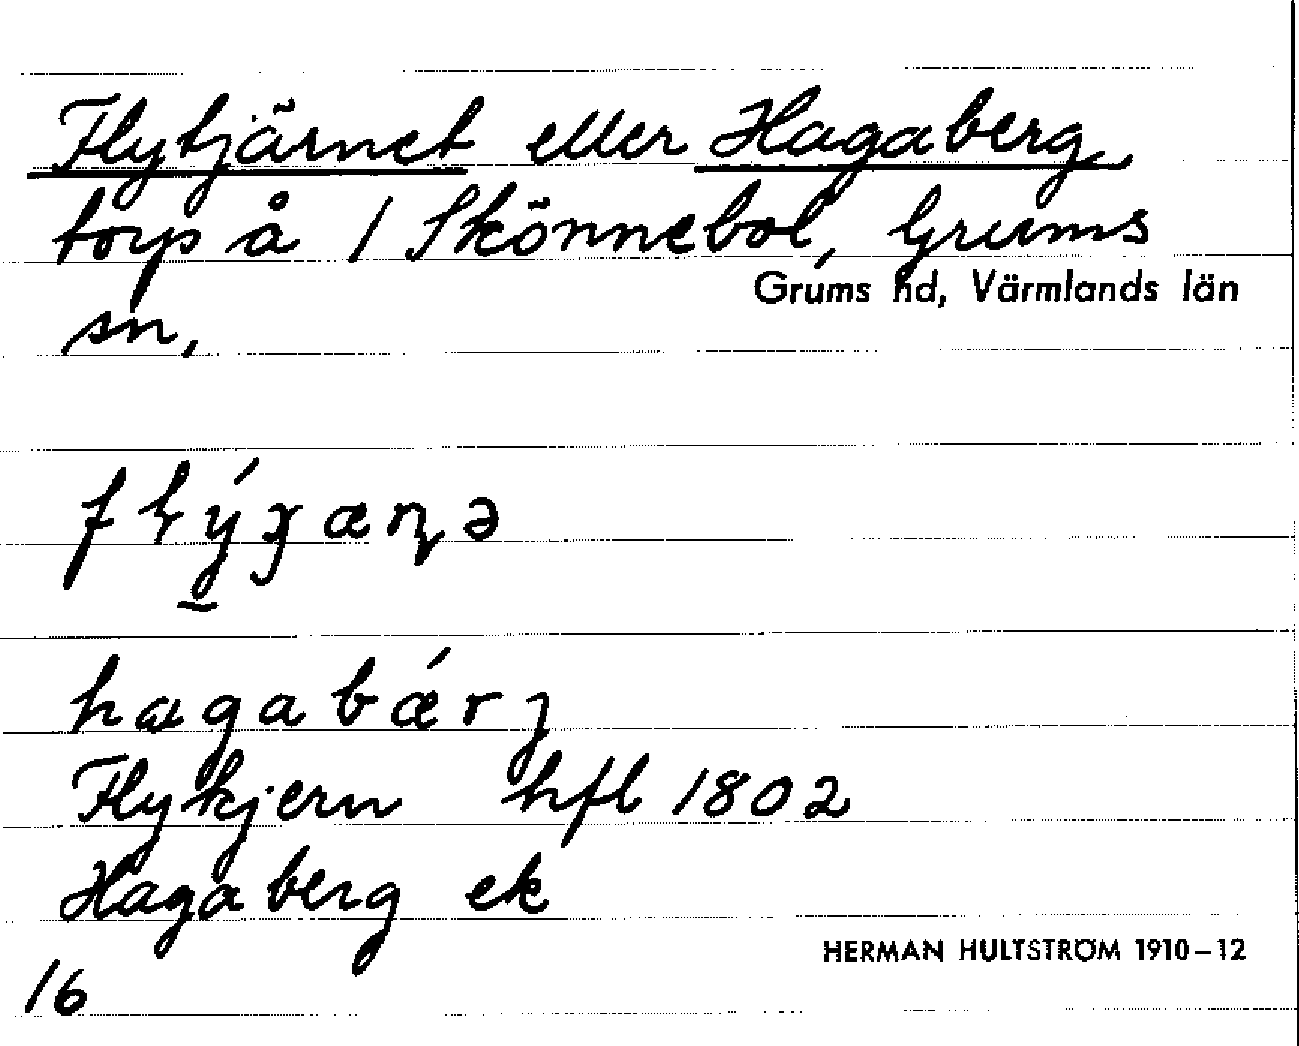 Flytjärnet eller Hagaberg
torp å 1 Skönnebol, Grums
Grums hd, Värmlands län
sn,
hagabǽrʒ
Flykjern hfl 1802
Hagaberg ek
HERMAN HULTSTRÖM 1910–12
16